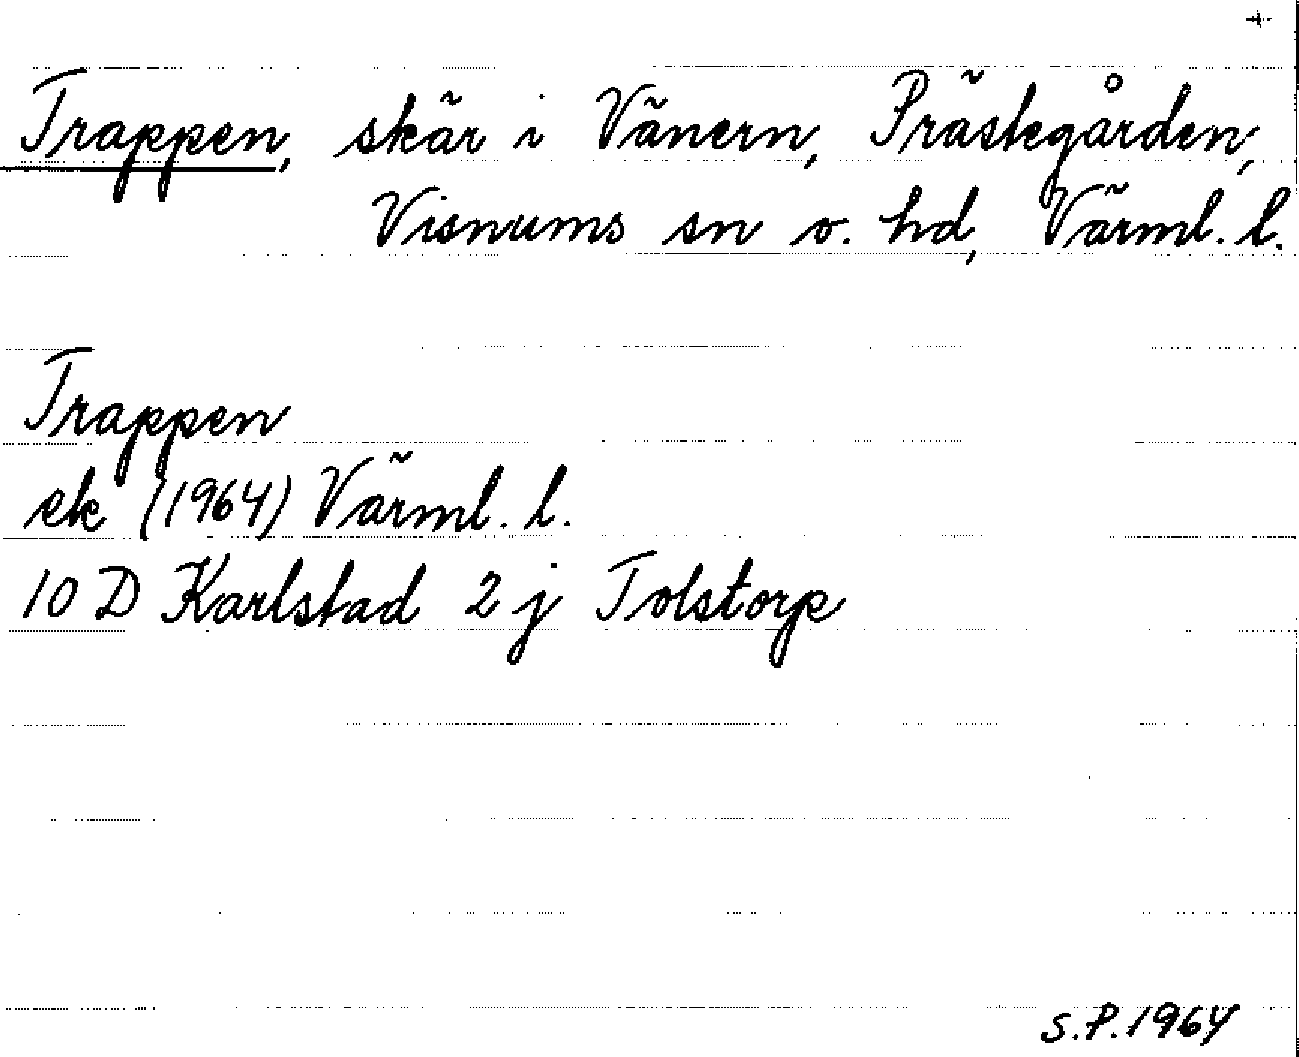 +
Trappen, skär i Vänern, Prästegården,
Visnums sn o. hd, Värml. l.
Trappen
ek (1964) Värml. l.
10 D Karlstad 2 j Tolstorp
S.P. 1964